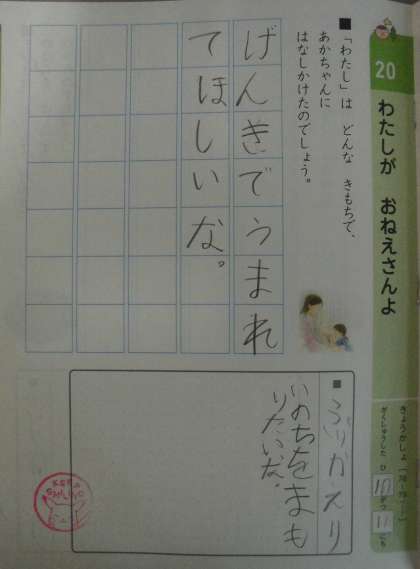 20
わたしが おねえさんよ
きょうかしょ
がくしゅうした ひ
10 がつ 11 にち
■「わたし」は どんな きもちで、
あかちゃんに
はなしかけたのでしょう。
げんきでうまれ
てほしいな。
■ふりかえり
いのちをまも
りたいな。